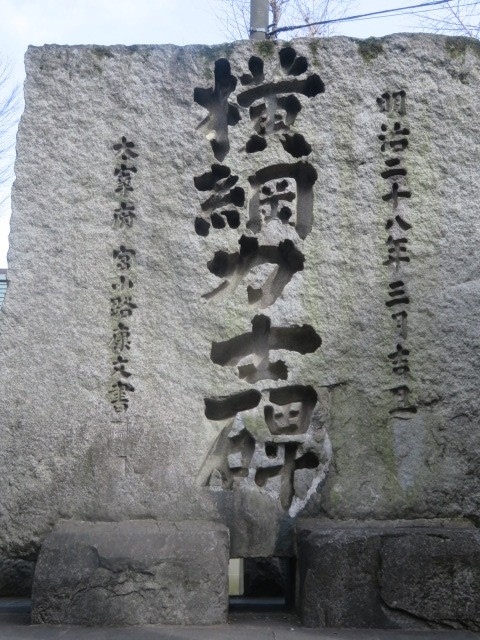 明治二十八年三月吉旦
横綱力士碑
大宰府 宮小路康文書